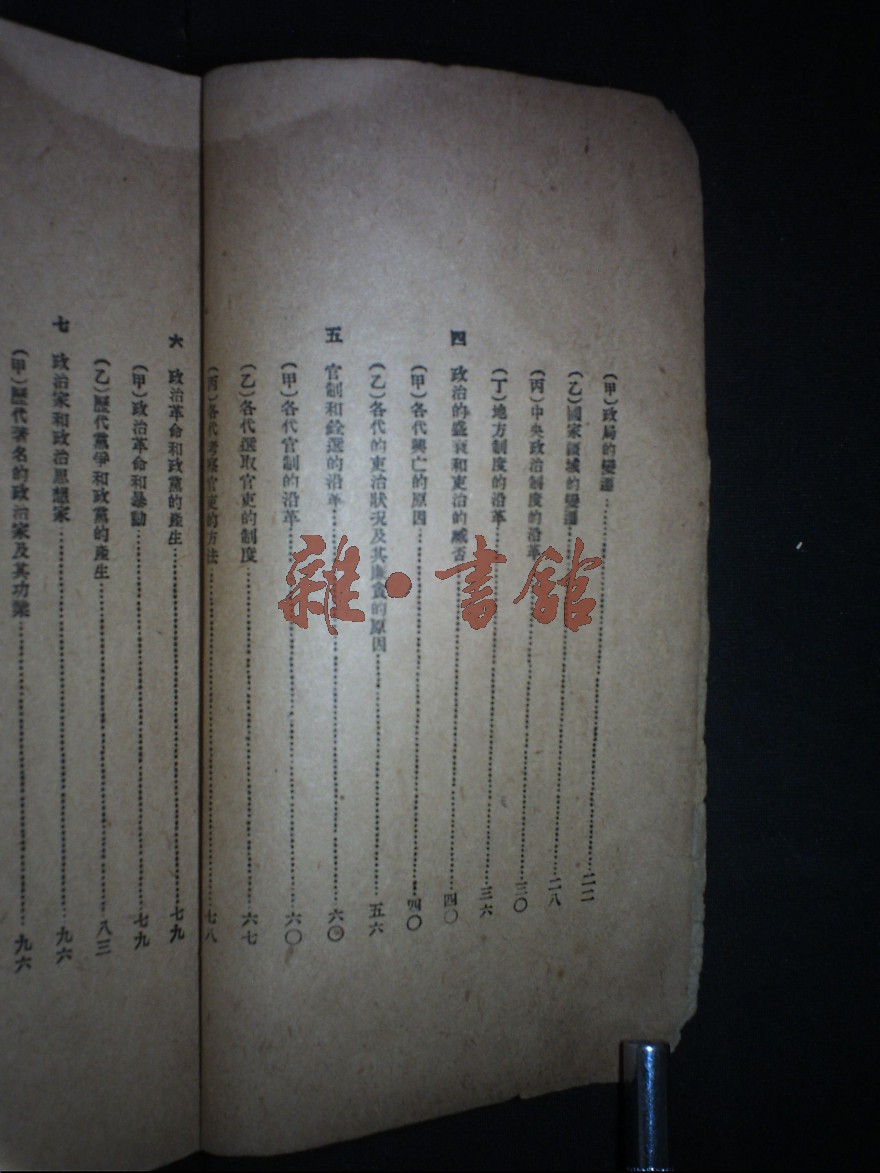 (甲)政局的變遷……二二
(乙)國家疆域的變遷……二八
(丙)中央政治制度的沿革……三〇
(丁)地方制度的沿革……三六
四 政治的盛衰和吏治的臧否……四〇
(甲)各代興亡的原因……四〇
(乙)各代的吏治狀况及其廉貪的原因……五六
五 官制和銓選的沿革……六〇
(甲)各代官制的沿革……六〇
(乙)各代選取官吏的制度……六七
(丙)各代考察官吏的方法……七八
六 政治革命和政黨的產生……七九
(甲)政治革命和暴動……七九
(乙)歷代黨爭和政黨的產生……八三
七 政治家和政治思想家……九六
(甲)歷代著名的政治家及其功業……九六
雜·書館